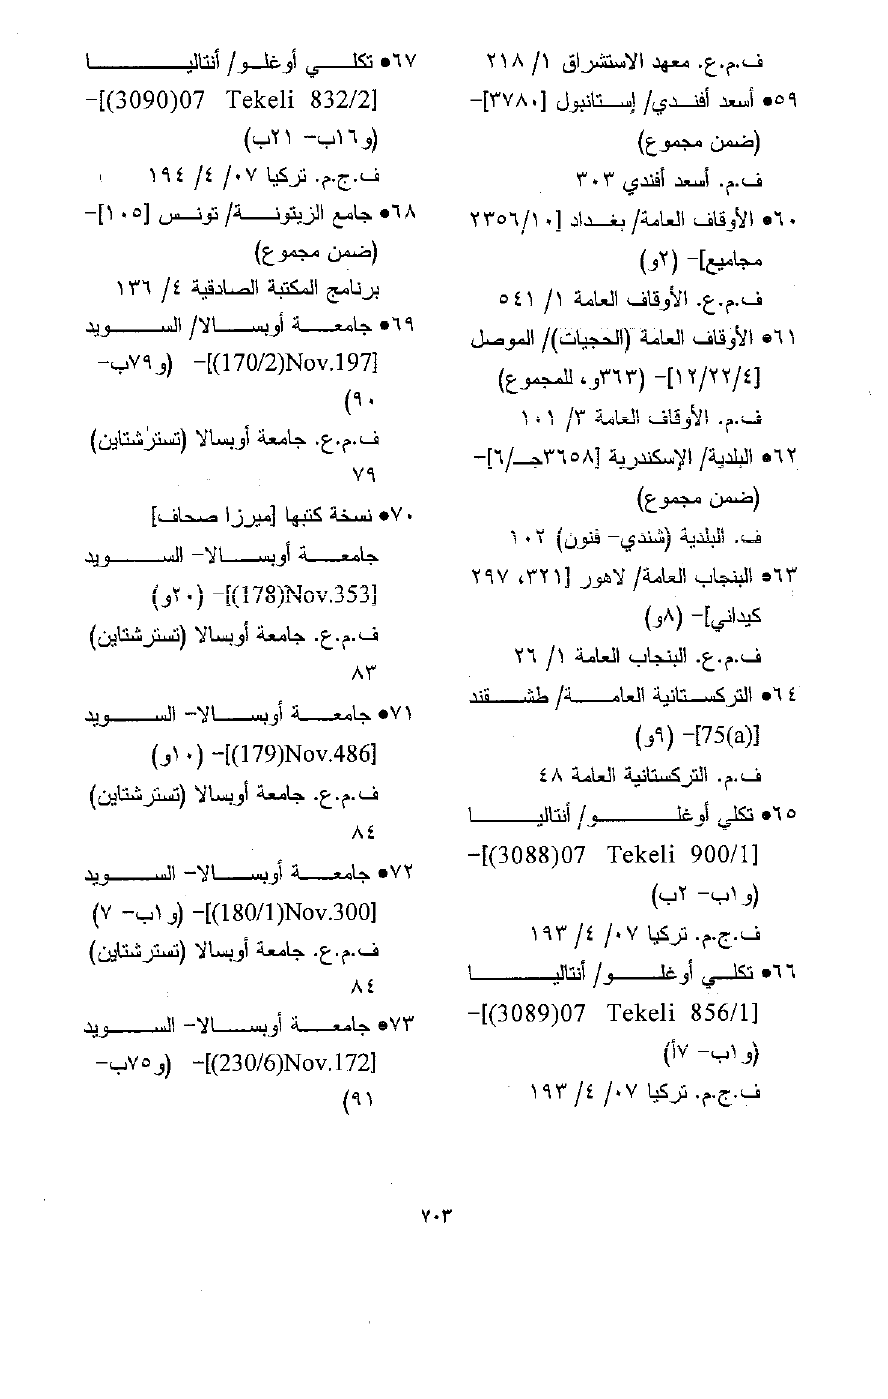 ف.م.ع. معهد الاستشراق ١/ ٢١٨
٥٩• أسعد أفندي/ إستانبول [٣٧٨٠]-
(ضمن مجموع)
ف.م. أسعد أفندي ٣٠٣
٦٠• الأوقاف العامة/ بغداد [٢٣٥٦/١٠
مجاميع]- (٢و)
ف.م.ع. الأوقاف العامة ١/ ٥٤١
٦١• الأوقاف العامة (الحجيات)/ الموصل
[١٢/٢٢/٤]- (٣٦٣و، للمجموع)
ف.م. الأوقاف العامة ٣/ ١٠١
٦٢• البلدية/ الإسكندرية [٣٦٥٨جـ/٦]-
(ضمن مجموع)
ف. البلدية (شندي- فنون) ١٠٢
٦٣• البنجاب العامة/ لاهور [٣٢١، ٢٩٧
كيداني]- (٨و)
ف.م.ع. البنجاب العامة ١/ ٢٦
٦٤• التركستانية العامة/ طشقند
[75(a)]- (٩و)
ف.م. التركستانية العامة ٤٨
٦٥• تكلي أوغلو/ أنتاليا
[(3088)07 Tekeli 900/1]-
(و١ب- ٢ب)
ف.ج.م. تركيا ٠٧/ ٤/ ١٩٣
٦٦• تكلي أوغلو/ أنتاليا
[(3089)07 Tekeli 856/1]-
(و١ب- ٧أ)
ف.ج.م. تركيا ٠٧/ ٤/ ١٩٣
٦٧• تكلي أوغلو/ أنتاليا
[(3090)07 Tekeli 832/2]-
(و١٦ب- ٢١ب)
ف.ج.م. تركيا ٠٧/ ٤/ ١٩٤
٦٨• جامع الزيتونة/ تونس [١٠٥]-
(ضمن مجموع)
برنامج المكتبة الصادقية ٤/ ١٣٦
٦٩• جامعة أوبسالا/ السويد
[(170/2)Nov.197]- (و٧٩ب-
٩٠)
ف.م.ع. جامعة أوبسالا (تسترشتاين)
٧٩
٧٠• نسخة كتبها [ميرزا صحاف]
جامعة أوبسالا- السويد
[(178)Nov.353]- (٢٠و)
ف.م.ع. جامعة أوبسالا (تسترشتاين)
٨٣
٧١• جامعة أوبسالا- السويد
[(179)Nov.486]- (١٠و)
ف.م.ع. جامعة أوبسالا (تسترشتاين)
٨٤
٧٢• جامعة أوبسالا- السويد
[(180/1)Nov.300]- (و١ب- ٧)
ف.م.ع. جامعة أوبسالا (تسترشتاين)
٨٤
٧٣• جامعة أوبسالا- السويد
[(230/6)Nov.172]- (و٧٥ب-
٩١)
٧٠٣